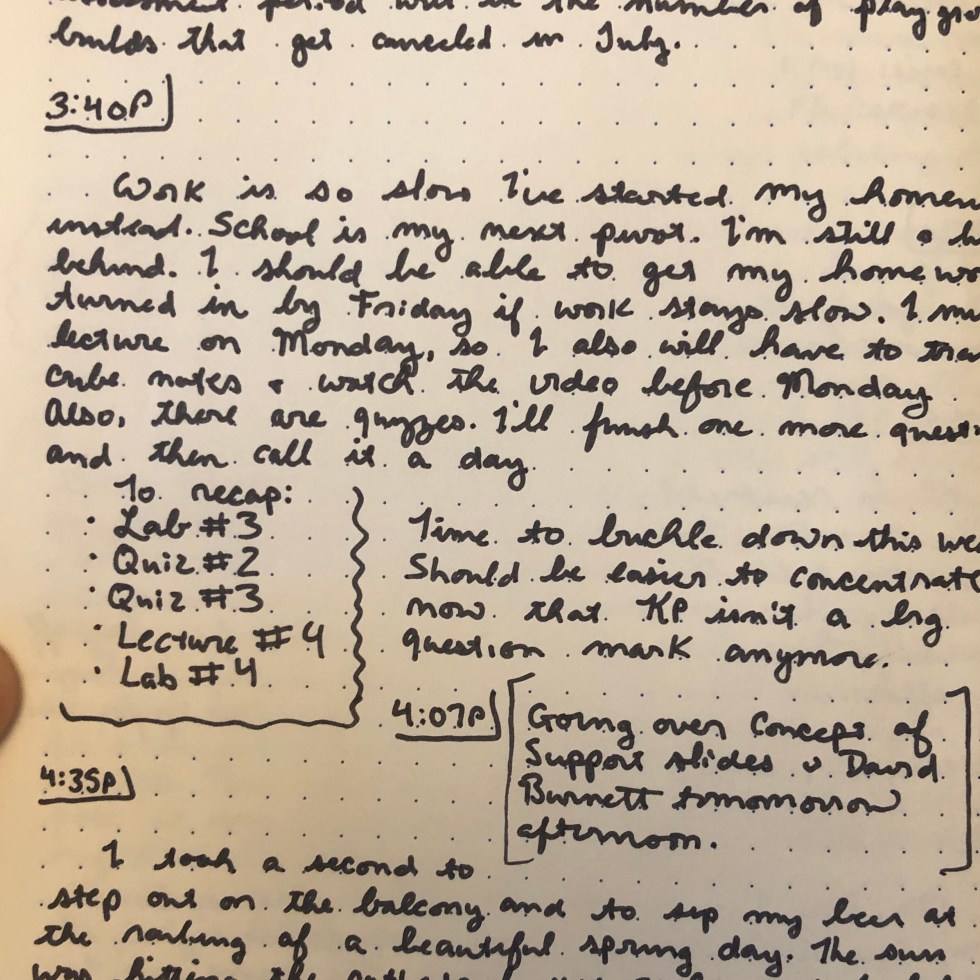 assessment period will be the number of playgro
builds that get canceled in July.
3:40P
Work is so slow I've started my homew
instead. School is my next pivot. I'm still a b
behind. I should be able to get my homewo
turned in by Friday if work stays slow. I mi
lecture on Monday, so I also will have to tran
cube notes & watch the video before Monday.
Also, there are quizzes. I'll finish one more questi
and then call it a day.
To recap:
· Lab #3
· Quiz #2
· Quiz #3
· Lecture #4
· Lab #4
Time to buckle down this we
Should be easier to concentrat
now that KP isn't a big
question mark anymore.
4:07P
Going over Concept of
Support slides w David
Burnett tomomorrow
afternoon.
4:35P
I took a second to
step out on the balcony and to sip my beer at
the of a beautiful spring day. The sun
was hitting the